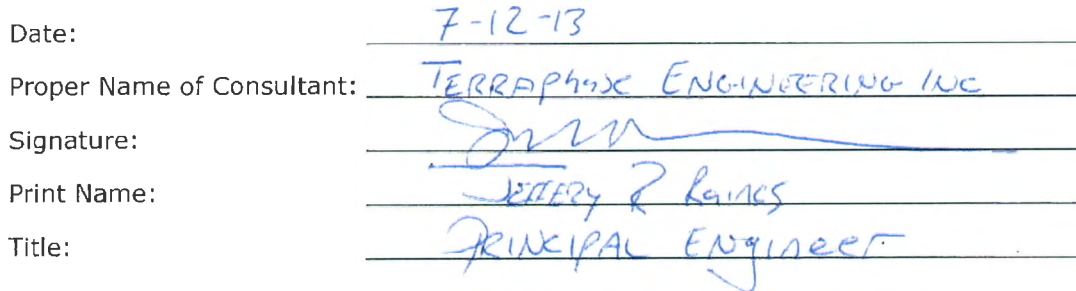 Date: 7-12-13
Proper Name of Consultant: TERRAPhase ENGINEERING INC
Signature:
Print Name: JEFFERY R Raines
Title: PRINCIPAL Engineer